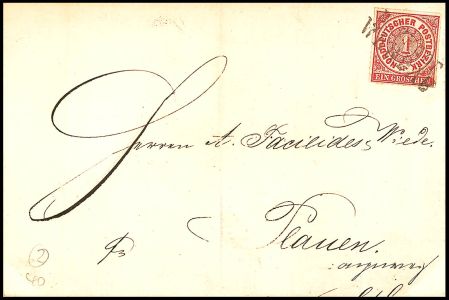 NORDDEUTSCHER POSTBEZIRK
1
EIN GROSCHEN
Herren A. Facilides & Wiede.
Plauen.
2
40